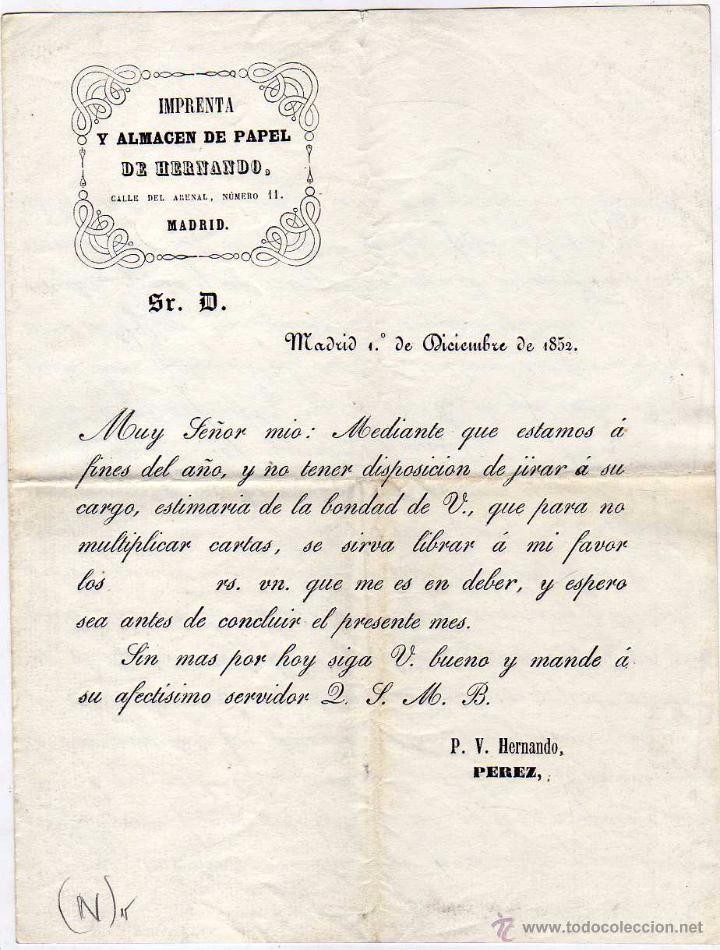 IMPRENTA
Y ALMACEN DE PAPEL
DE HERNANDO,
CALLE DEL ARENAL, NÚMERO 11.
MADRID.
Sr. D.
Madrid 1.º de Diciembre de 1852.
Muy Señor mio: Mediante que estamos á
fines del año, y no tener disposicion de jirar á su
cargo, estimaria de la bondad de V., que para no
multiplicar cartas, se sirva librar á mi favor
los rs. vn. que me es en deber, y espero
sea antes de concluir el presente mes.
Sin mas por hoy siga V. bueno y mande á
su afectísimo servidor Q. S. M. B.
P. V. Hernando,
PEREZ,
(N)
todocoleccion
www.todocoleccion.net